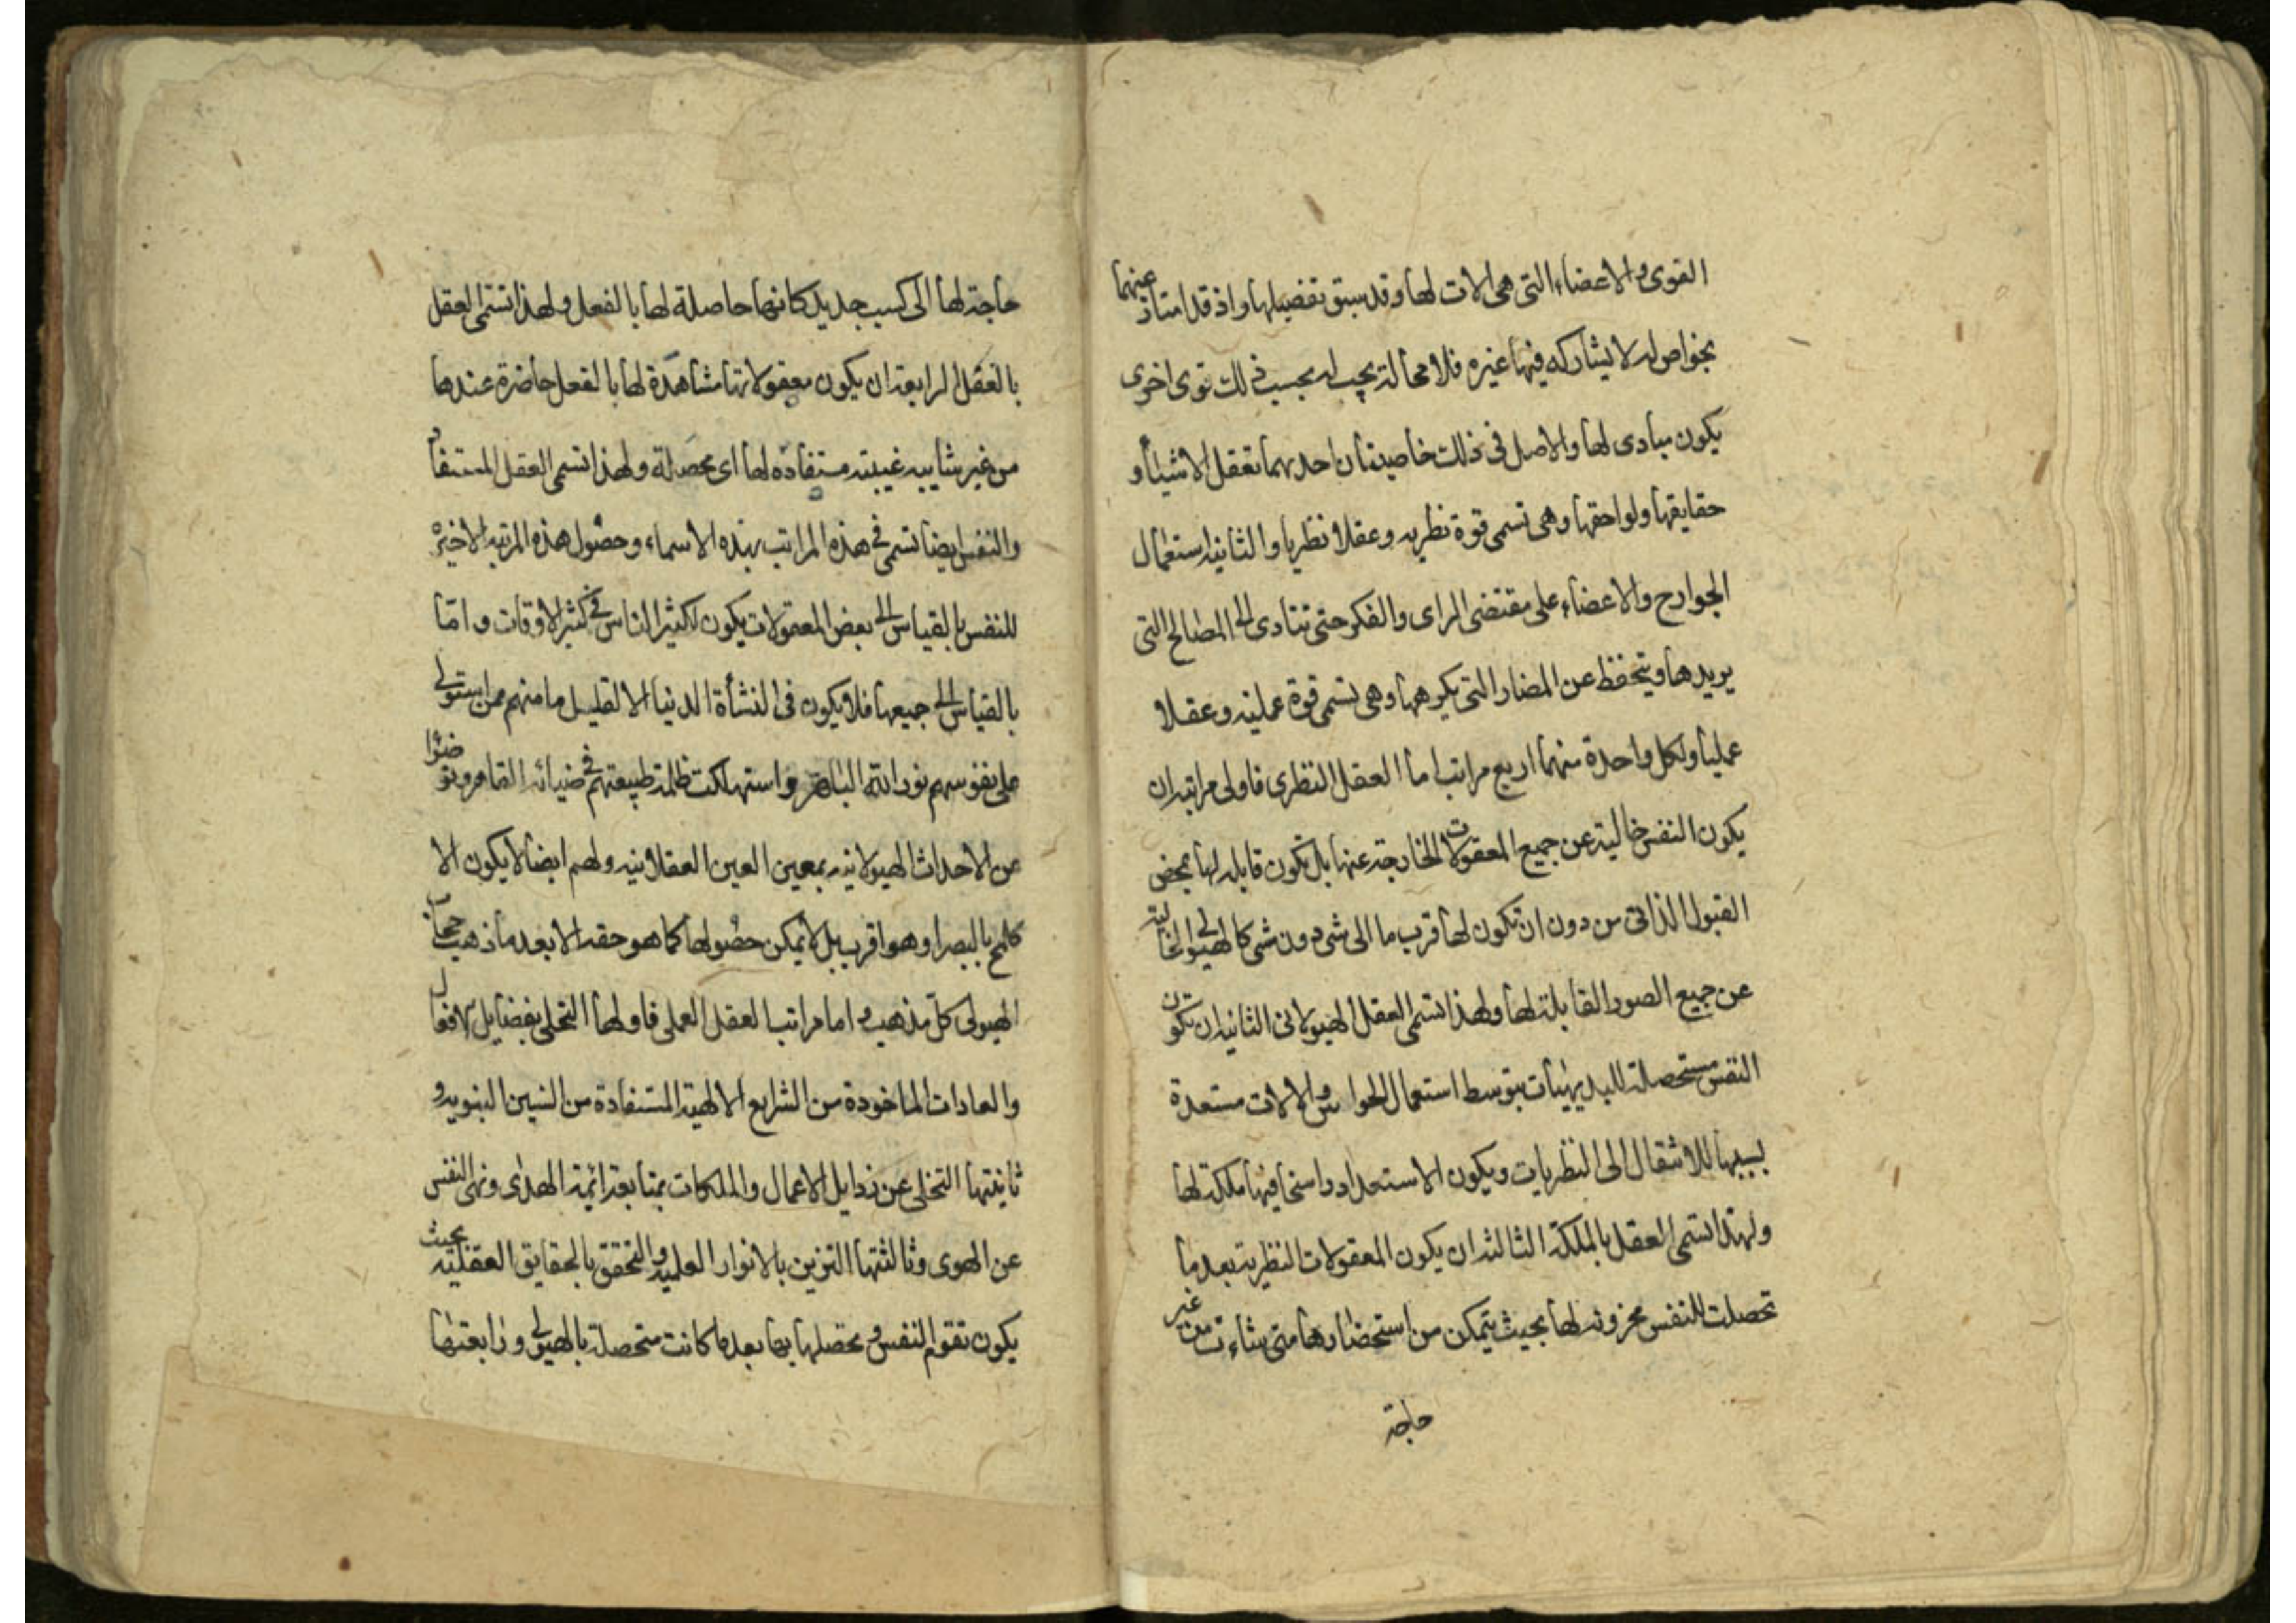 القوى والاعضاء التى هى الات لها وقد سبق تفصيلها واذ قد امتاز عنهما
بخواص له لا يشاركه فيها غيره فلا محالة يجب له بحسب ذلك قوى اخرى
يكون مبادى لها والاصل فى ذلك خاصيتان احديهما تعقل الاشياء و
حقايقها ولواحقها وهى تسمى قوة نظريه وعقلا نظريا والثانيه استعمال
الجوارح والاعضاء على مقتضى الراى والفكر حتى تتادى الى المصالح التى
يريدها ويتحفظ عن المضار التى يكرهها وهى تسمى قوة عمليه وعقلا
عمليا ولكل واحدة منهما اربع مراتب اما العقل النظرى فاولى مراتبه ان
يكون النفس خالية عن جميع المعقولات الخارجة عنها بل تكون قابله لها بمحض
القبول الذاتى من دون ان تكون لها قرب ما الى شى دون شى كالهيولى الخالية
عن جميع الصور القابلة لها ولهذا تسمى العقل الهيولانى الثانيه ان تكون
النفس مستحصلة للبديهيات بتوسط استعمال الحواس والالات مستعدة
بسببها للانتقال الى النظريات ويكون الاستعداد راسخا فيها ملكة لها
ولهذا تسمى العقل بالملكة الثالثه ان يكون المعقولات النظرية بعد ما
تحصلت للنفس مخزونه لها بحيث يتمكن من استحضارها متى شاءت من غير
حاجة
حاجة لها الى كسب جديد كانها حاصلة لها بالفعل ولهذا تسمى العقل
بالعقل الرابعة ان يكون معقولاتها مشاهدة لها بالفعل حاضرة عندها
من غير شايبه غيبته مستفادة لها اى محصلة ولهذا تسمى العقل المستفاد
والنفس ايضا تسمى فى هذه المراتب بهذه الاسماء وحصول هذه المرتبه الاخيرة
للنفس بالقياس الى بعض المعقولات يكون لكثير الناس فى كثير الاوقات واما
بالقياس الى جميعها فلا يكون فى النشأة الدنيا الا لقليل ما منهم ممن استولى
على نفوسهم نور الله الباهر واستهلكت ظلمة طبيعتهم فى ضيائه القاهر وتوضوا
عن الاحداث الهيولانيه بمعين العين العقلانيه ولهم ايضا لا يكون الا
كلمح بالبصر او هو اقرب بل لا يمكن حصولها كما هو حقه الا بعد ما ذهب حجاب
الهيولى كل مذهب و اما مراتب العقل العملى فاولها التحلى بفضايل الافعال
والعادات الماخودة من الشرايع الالهية المستفادة من السنن النبويه و
ثانيتها التخلى عن رذايل الاعمال والملكات بمتابعة ائمة الهدى ونهى النفس
عن الهوى وثالثتها التزين بالانوار العلميه والتحقق بالحقايق العقليه بحيث
يكون تقوم النفس وتحصلها بها بعد ما كانت متحصلة بالهيولى ورابعتها